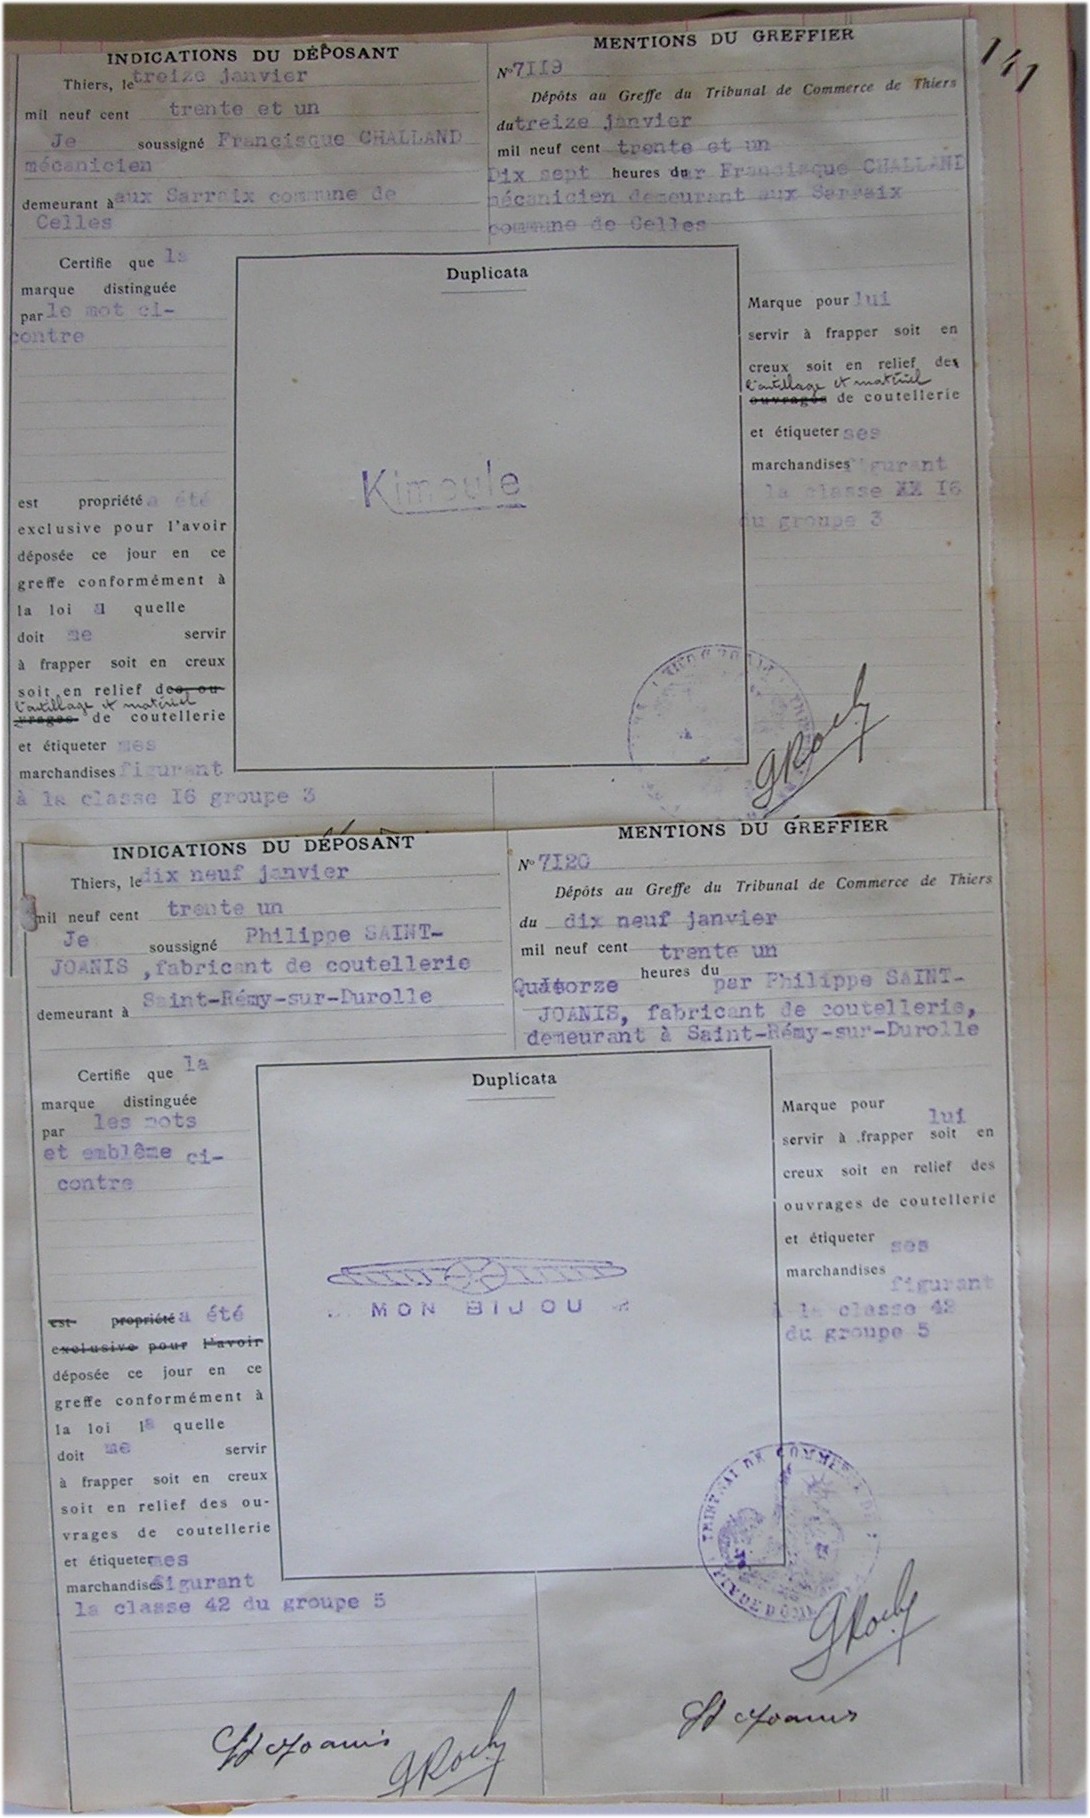 141
INDICATIONS DU DÉPOSANT
Thiers, le treize janvier
mil neuf cent trente et un
Je soussigné Francisque CHALLAND
mécanicien
demeurant à aux Sarraix commune de
Celles
Certifie que la
marque distinguée
par le mot ci-
contre
est propriété a été
exclusive pour l'avoir
déposée ce jour en ce
greffe conformément à
la loi a quelle
doit me servir
à frapper soit en creux
soit en relief des ou-
l'outillage et matériel
vrages de coutellerie
et étiqueter mes
marchandises figurant
à la classe I6 groupe 3
MENTIONS DU GREFFIER
N° 7II9
Dépôts au Greffe du Tribunal de Commerce de Thiers
du treize janvier
mil neuf cent trente et un
Dix sept heures du ar Francisque CHALLAND
mécanicien demeurant aux Sarraix
commune de Celles
Duplicata
Kimoule
Marque pour lui
servir à frapper soit en
creux soit en relief des
l'outillage et matériel
ouvrages de coutellerie
et étiqueter ses
marchandises figurant
la classe XX I6
du groupe 3
GRoch
INDICATIONS DU DÉPOSANT
Thiers, le dix neuf janvier
mil neuf cent trente un
Je soussigné Philippe SAINT-
JOANIS , fabricant de coutellerie
demeurant à Saint-Rémy-sur-Durolle
Certifie que la
marque distinguée
par les mots
et emblême ci-
contre
est propriété a été
exclusive pour l'avoir
déposée ce jour en ce
greffe conformément à
la loi la quelle
doit me servir
à frapper soit en creux
soit en relief des ou-
vrages de coutellerie
et étiqueter mes
marchandises figurant
la classe 42 du groupe 5
St Joanis
GRoch
MENTIONS DU GREFFIER
N° 7I20
Dépôts au Greffe du Tribunal de Commerce de Thiers
du dix neuf janvier
mil neuf cent trente un
Quatorze heures du par Philippe SAINT-
JOANIS, fabricant de coutellerie,
demeurant à Saint-Rémy-sur-Durolle
Duplicata
MON BIJOU
Marque pour lui
servir à frapper soit en
creux soit en relief des
ouvrages de coutellerie
et étiqueter ses
marchandises figurant
à la classe 42
du groupe 5
TRIBUNAL DE COMMERCE DE
GRoch
St Joanis